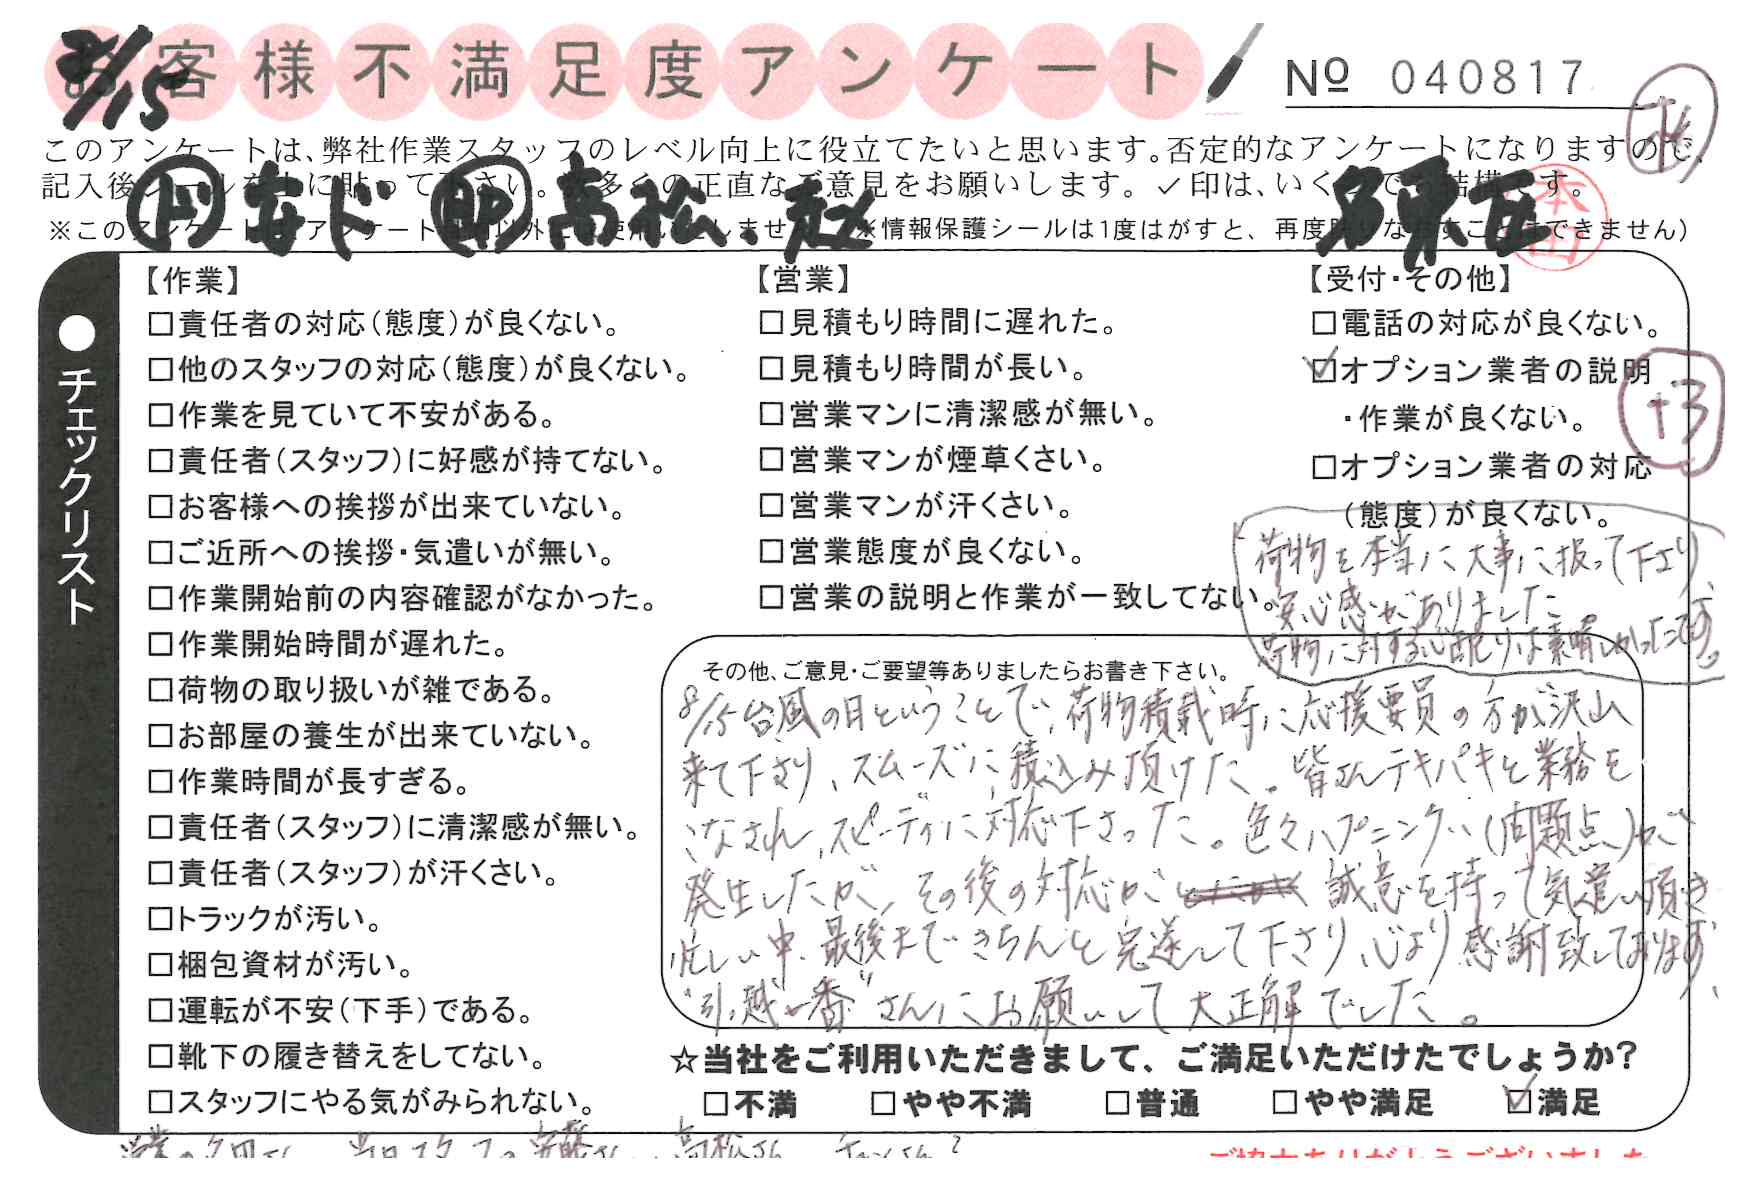 8/15
お客様不満足度アンケート
№ 040817
このアンケートは、弊社作業スタッフのレベル向上に役立てたいと思います。否定的なアンケートになりますので、
記入後シールを上に貼って下さい。数多くの正直なご意見をお願いします。✓印は、いくつでも結構です。
※情報保護シールは1度はがすと、再度貼りなおすことはできません)
ド 安ド 助 高松、趙
本田
●チェックリスト
【作業】
□責任者の対応(態度)が良くない。
□他のスタッフの対応(態度)が良くない。
□作業を見ていて不安がある。
□責任者(スタッフ)に好感が持てない。
□お客様への挨拶が出来ていない。
□ご近所への挨拶・気遣いが無い。
□作業開始前の内容確認がなかった。
□作業開始時間が遅れた。
□荷物の取り扱いが雑である。
□お部屋の養生が出来ていない。
□作業時間が長すぎる。
□責任者(スタッフ)に清潔感が無い。
□責任者(スタッフ)が汗くさい。
□トラックが汚い。
□梱包資材が汚い。
□運転が不安(下手)である。
□靴下の履き替えをしてない。
□スタッフにやる気がみられない。
【営業】
□見積もり時間に遅れた。
□見積もり時間が長い。
□営業マンに清潔感が無い。
□営業マンが煙草くさい。
□営業マンが汗くさい。
□営業態度が良くない。
□営業の説明と作業が一致してない。
【受付・その他】
□電話の対応が良くない。
☑オプション業者の説明
・作業が良くない。
□オプション業者の対応
(態度)が良くない。
+3
荷物を本当に大事に扱って下さり
安心感がありました
荷物に対する心配りは素晴しかったです。
その他、ご意見・ご要望等ありましたらお書き下さい。
8/15台風の日ということで、荷物積載時に応援要員の方が沢山
来て下さり、スムーズに積込み頂けた。皆さんテキパキと業務を
こなされ、スピーディに対応下さった。色々ハプニング(問題点)が
発生したが、その後の対応がと 誠意を持って気遣い頂き
忙しい中、最後まできちんと完遂して下さり、心より感謝致しております、
"引越一番"さんにお願いして大正解でした。
☆当社をご利用いただきまして、ご満足いただけたでしょうか?
□不満 □やや不満 □普通 □やや満足 ☑満足
ご協力ありがとうございました